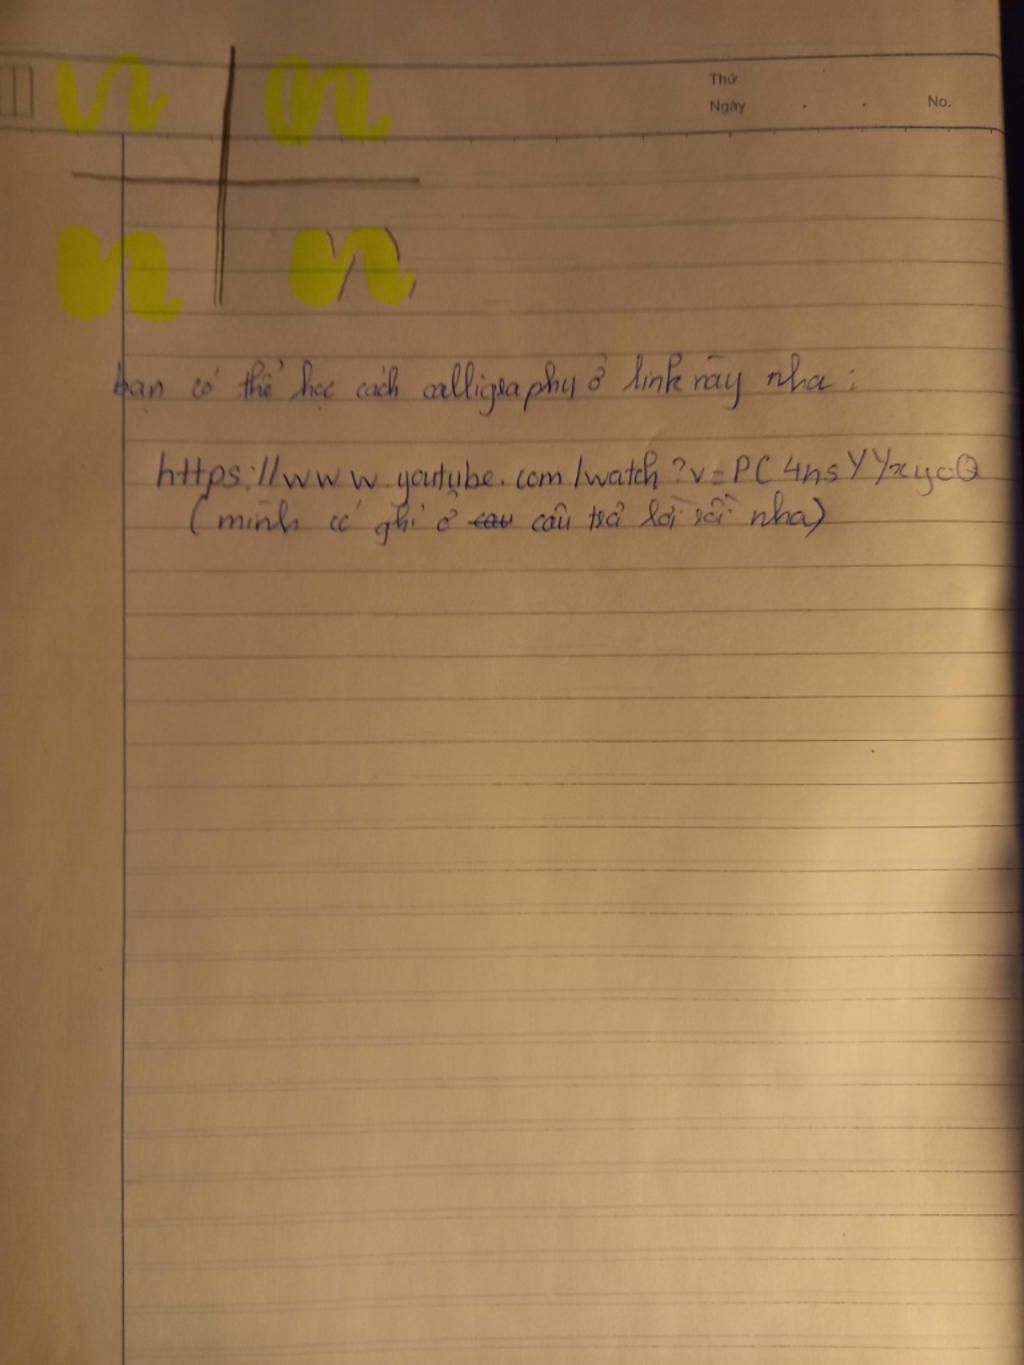 Thứ
Ngày . . No.
n n
n n
bạn có thể học cách calligraphy ở link này nha :
https://www.youtube.com/watch?v=PC4nsYYxycQ
(mình có ghi ở cau câu trả lời rồi nha)